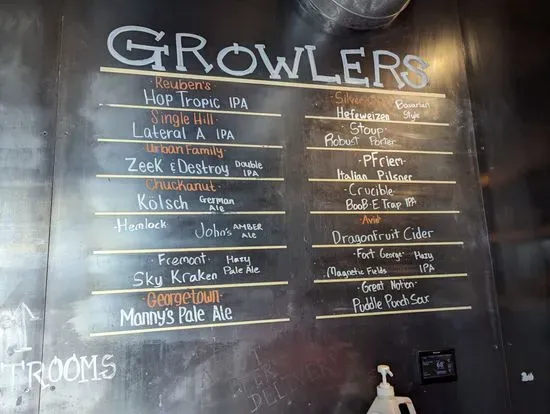 GROWLERS
Reuben's
Hop Tropic IPA
Single Hill
Lateral A IPA
Urban Family
Zeek & Destroy Double IPA
Chuckanut
Kölsch German Ale
Hemlock
John's AMBER ALE
Fremont
Sky Kraken Hazy Pale Ale
Georgetown
Manny's Pale Ale
Silver
Hefeweizen Bavarian Style
Stoup
Robust Porter
PFriem
Italian Pilsner
Crucible
BooB-E Trap IPA
Avid
DragonFruit Cider
Fort George
Magnetic Fields Hazy IPA
Great Notion
Puddle Porch Sour
TROOMS